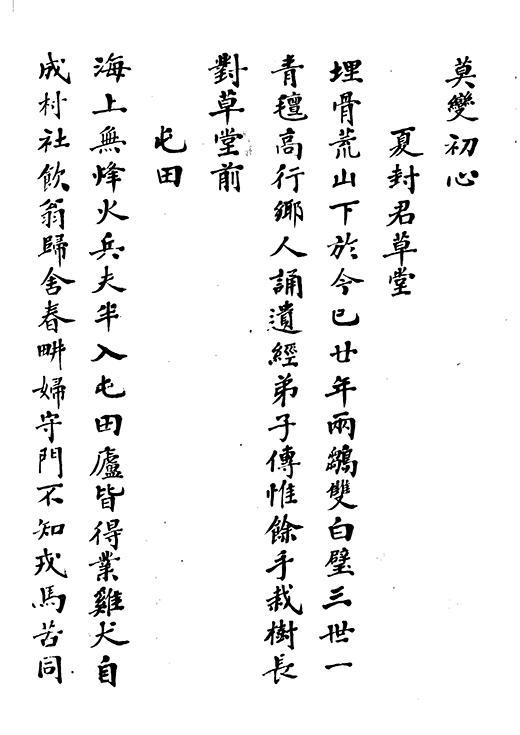 莫變初心
夏封君草堂
埋骨荒山下於今已廿年兩鶵雙白璧三世一
青氊高行鄉人誦遺經弟子傳惟餘手栽樹長
對草堂前
屯田
海上無烽火兵夫半入屯田廬皆得業雞犬自
成村社飲翁歸舍春畊婦守門不知戎馬苦同